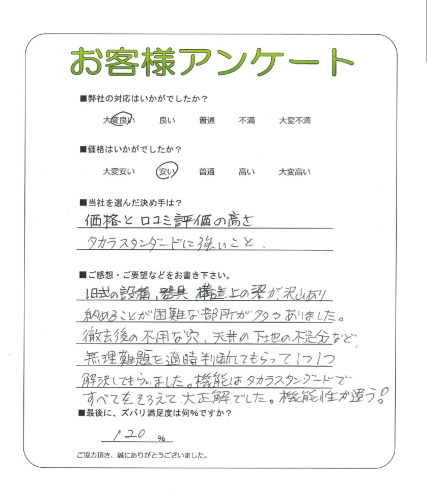 お客様アンケート
■弊社の対応はいかがでしたか？
大変良い 良い 普通 不満 大変不満
■価格はいかがでしたか？
大変安い 安い 普通 高い 大変高い
■当社を選んだ決め手は？
価格と口コミ評価の高さ
タカラスタンダードに強いこと、
■ご感想・ご要望などをお書き下さい。
旧式の設備、器具 構造上の梁が、沢山あり
納めることが困難な部所が多々ありました。
徹去後の不用な穴、天井の下地の不足分など、
無理難題を適時判断してもらって1つ1つ
解決してもらいました。機能はタカラスタンダードで
すべてをそろえて大正解でした。機能性が違う!
■最後に、ズバリ満足度は何%ですか？
120 %
ご協力頂き、誠にありがとうございました。